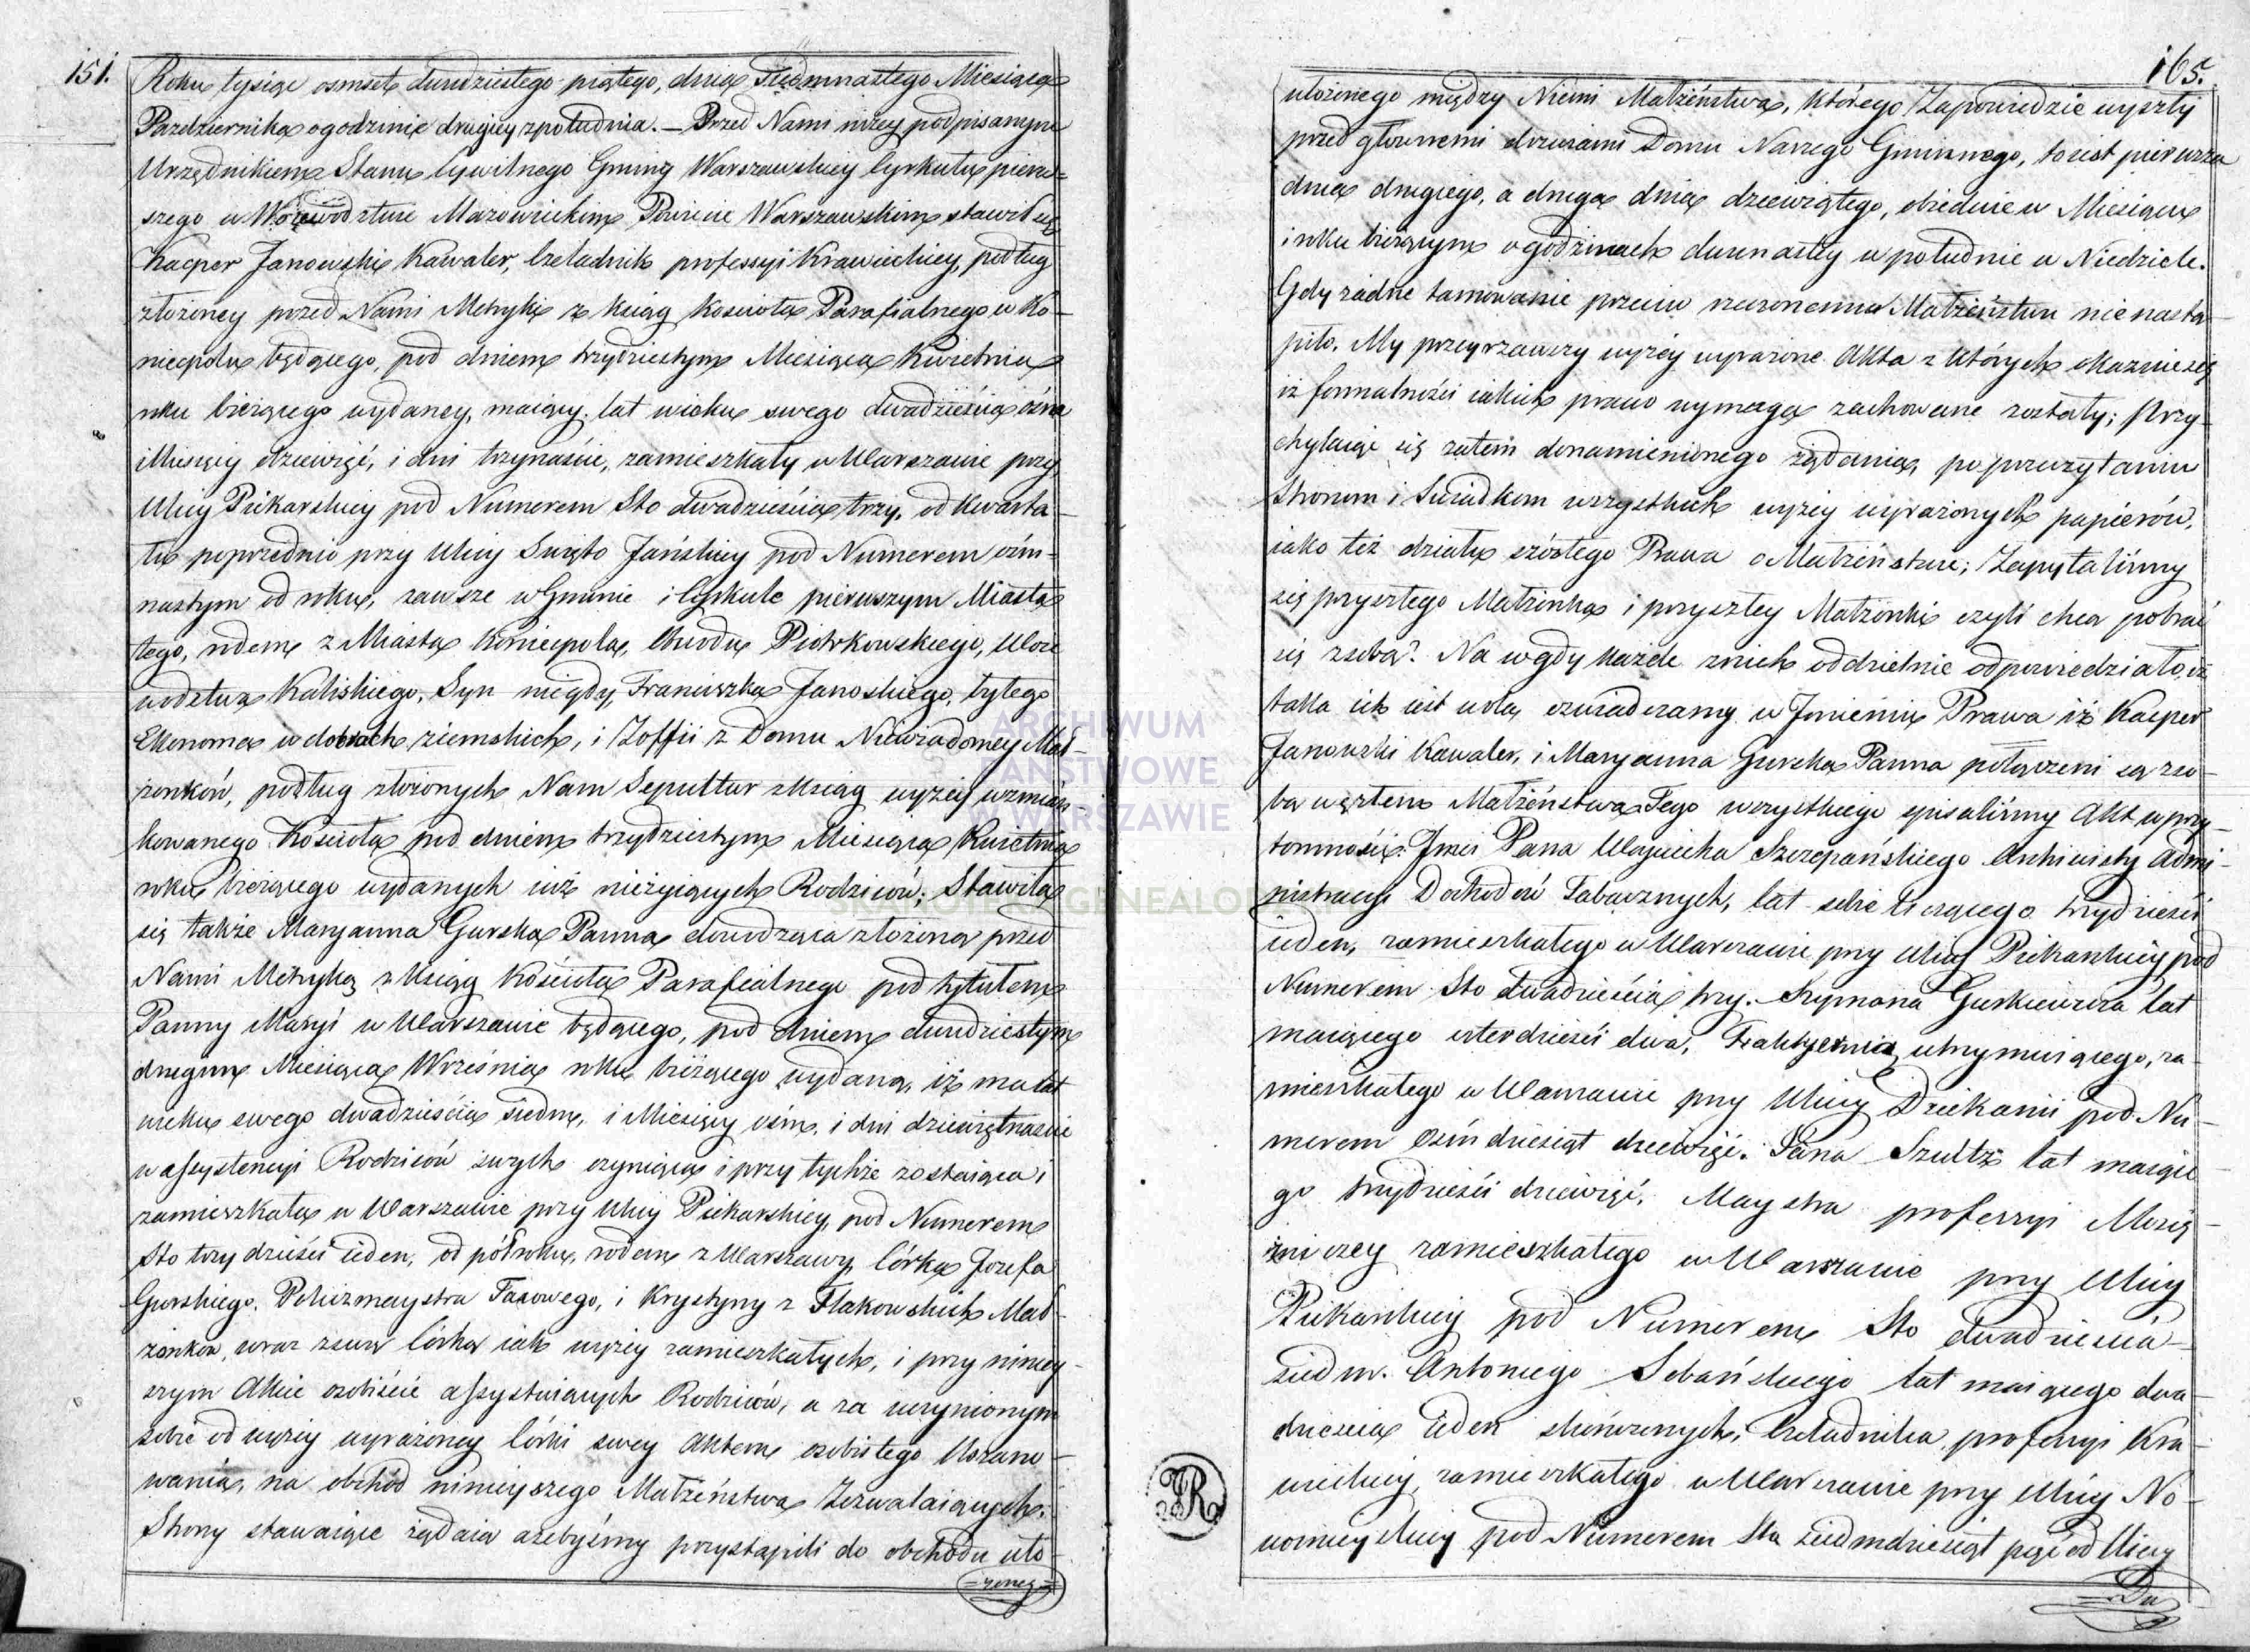 151.
Roku tysiąc osmset dwudziestego piątego, dnia Siedmnastego Miesiąca
Pazdziernika o godzinie drugiey z południa. — Przed Nami niżey podpisanym
Urzędnikiem Stanu Cywilnego Gminy Warszawskiey Cyrkułu pierw-
szego w Woiewodztwie Mazowieckim Powiecie Warszawskim stawił się
Kacper Janowski Kawaler, Czeladnik professyi Krawieckiey, podług
złożoney przed Nami Metryki z ksiąg Kościoła Parafialnego w Ko-
niecpolu będącego, pod dniem trzydziestym Miesiąca Kwietnia
roku bieżącego wydaney, maiący lat wieku swego dwadzieścia ośm
Miesięcy dziewięć, i dni trzynaście, zamieszkały w Warszawie przy
Ulicy Piekarskiey pod Numerem Sto dwadzieścia trzy, od kwarta-
łu poprzednio przy Ulicy Święto Jańskiey pod Numerem ośm-
nastym od roku, zawsze w Gminie i Cyrkule pierwszym Miasta
tego, rodem z Miasta Koniecpola, Obwodu Piotrkowskiego, Woie
wodztwa Kaliskiego, Syn niegdy Franciszka Janoskiego, byłego
Ekonoma w dobrach ziemskich, i Zoffii z Domu Niewiadomey Mał-
żonków, podług złożonych Nam Sepultur z ksiąg wyżey wzmian-
kowanego Kościoła pod dniem trzydziestym Miesiąca Kwietnia
roku bieżącego wydanych iuż nieżyiących Rodziców; Stawiła
się także Maryanna Gurska Panna dowodząca złożoną przed
Nami Metryką z ksiąg Kościoła Parafialnego pod tytułem
Panny Maryi w Warszawie będącego, pod dniem dwudziestym
drugim Miesiąca Września roku bieżącego wydaną, iż ma lat
wieku swego dwadzieścia siedm, i Miesięcy ośm, i dni dziewiętnaście
w assystencyi Rodziców swych czyniąca i przy tychże zostaiąca i
zamieszkała w Warszawie przy Ulicy Piekarskiey pod Numerem
Sto trzydzieści ieden, od półroku, rodem z Warszawy, Córka Jozefa
Gurskiego, Poczmaystra Taxowego, i Krystyny z Flakowskich Mał-
żonków, wraz z swą Córką iak wyżey zamieszkałych, i przy niniey-
szym Akcie osobiście assystuiących Rodziców, a za uczynionym
sobie od wyżey wyrażoney Córki swey Aktem osobistego Uszano-
wania, na obchód ninieyszego Małżeństwa Zezwalaiących.
Strony stawaiące żądaią ażebyśmy przystąpili do obchodu uło-
=żoneg=
165.
ułożonego między Niemi Małżeństwa, którego Zapowiedzie wyszły
przed głownemi drzwiami Domu Naszego Gminnego, to iest pierwsza
dnia drugiego, a druga dnia dziewiątego, obiedwie w Miesiącu
i roku bieżącym o godzinach dwunastey w południe w Niedziele.
Gdy żadne tamowanie przeciw rzeczonemu Małżeństwu nie nastą-
piło, My przeyrzawszy wyżey wyrażone Akta z których okazuie się
iż formalności iakich prawo wymaga zachowane zostały; przy-
chylaiąc się zatem do namienionego żądania, po przeczytaniu
Stronom i Świadkom wszystkich wyżey wyrażonych papierów,
iako też działu szóstego Prawa o Małżeństwie; Zapytaliśmy
się przyszłego Małżonka i przyszłey Małżonki czyli chcą pobrać
się z sobą? Na co gdy każde z nich oddzielnie odpowiedziało, iż
taka ich iest wola, oświadczamy w Jmieniu Prawa iż Kacper
Janowski Kawaler, i Maryanna Gurska Panna połączeni są z so-
bą węzłem Małżeństwa. Tego wszystkiego spisaliśmy Akt w przy-
tomności: Jmci Pana Woyciecha Szczepańskiego Archiwisty Admi-
nistracyi Dochodów Tabacznych, lat sobie liczącego trzydzieści
ieden, zamieszkałego w Warszawie przy Ulicy Piekarskiey pod
Numerem Sto dwadzieścia trzy. Szymona Gurkiewicza lat
maiącego czterdzieści dwa, Traktyernia utrzymuiącego, za-
mieszkałego w Warszawie przy Ulicy Dziekanii pod Nu-
merem Ośmdziesiąt dziewięć. Jana Szultz lat maiące-
go trzydzieści dziewięć, Maystra professyi Mosię-
żniczey zamieszkałego w Warszawie przy Ulicy
Piekarskiey pod Numerem Sto dwadzieścia-
siedm. Antoniego Sobańskiego lat maiącego dwa-
dzieścia ieden skończonych, Czeladnika professyi Kra-
wieckiey, zamieszkałego w Warszawie przy Ulicy No-
womieyskiey pod Numerem Sto siedmdziesiąt pięć od Ulicy
Du
ARCHIWUM
PAŃSTWOWE
W WARSZAWIE